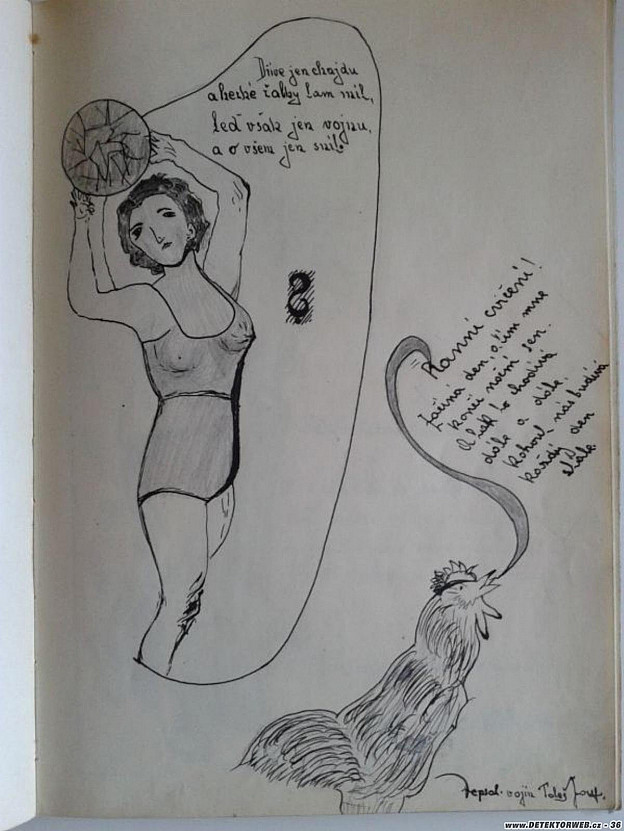 Dříve jen chajdu
a hezké žabky tam mil,
teď však jen vojnu,
a o všem jen snil.
8
Ranní cvičení!
Začíná den, o čím mne
končí noční sen.
A tak to chodívá
dále a dále
kohout nás budívá
každý den stále.
Nepsal vojín Josef.
www.DETEKTORWEB.cz - 36